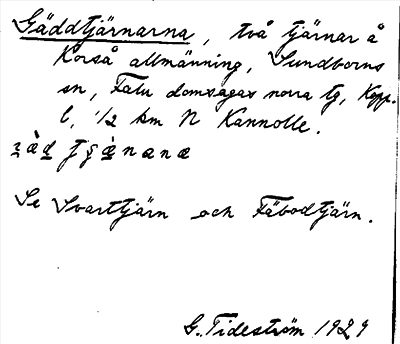 Gäddtjärnarna, två tjärnar å
Korså allmänning, Sundborns
sn, Falu domsagas norra tg, Kopp.
l, 1/2 km N Kannolle.
Se Svarttjärn och Fäbodtjärn.
G. Tideström 1929